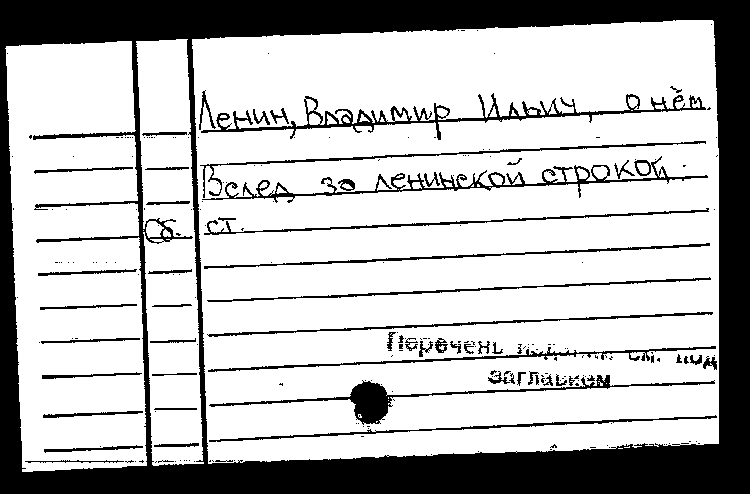 Ленин, Владимир Ильич, о нём.
Вслед за ленинской строкой:
Сб. ст.
Перечень изданий см. под
заглавием